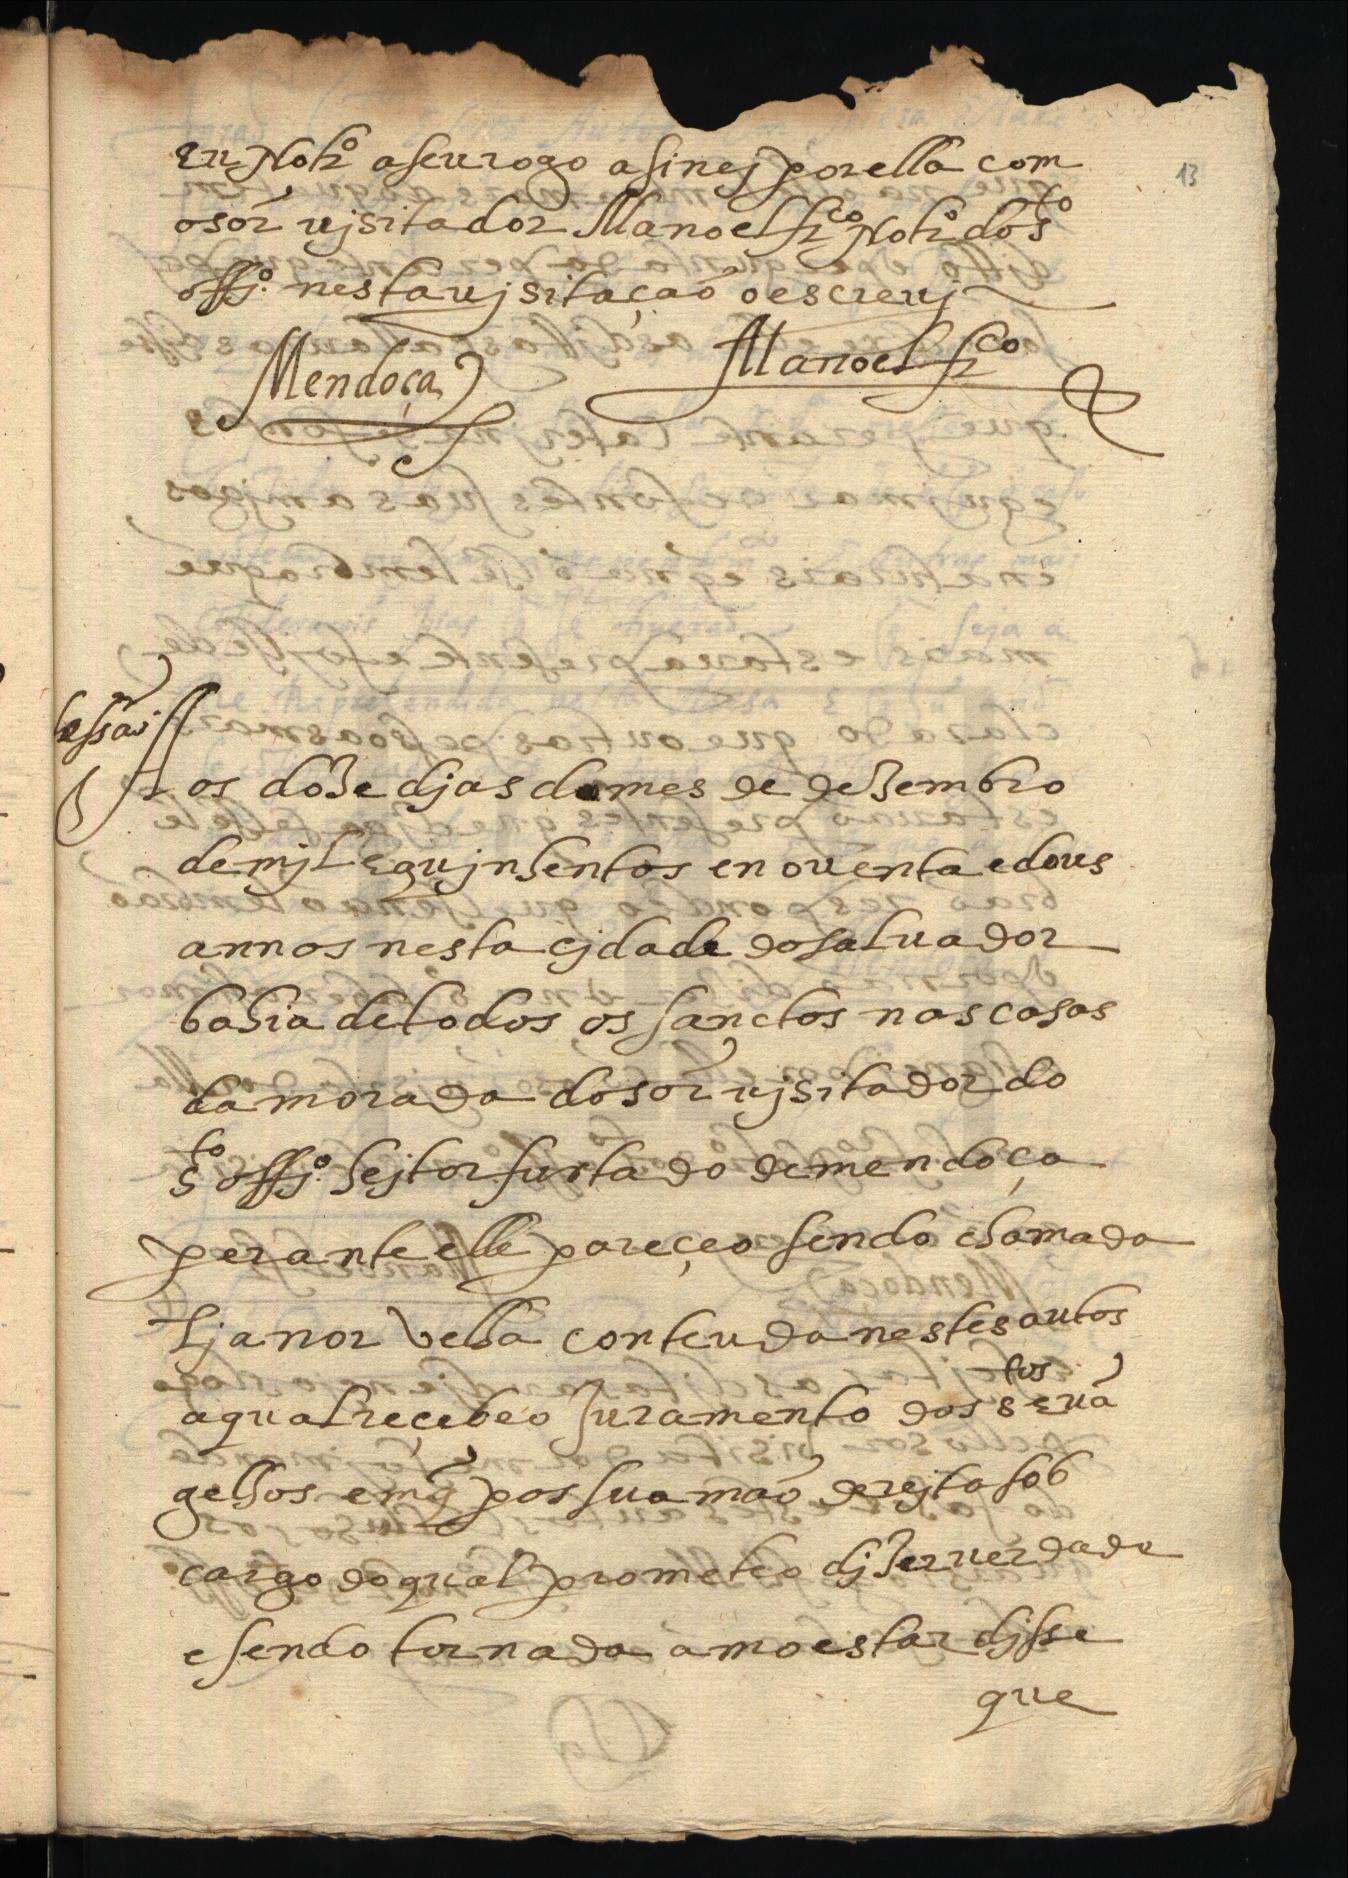 13
eu Notr.º a seu rogo asinej por ella com
o sõr vjsitador Manoel fr.co Notr.º do s.to
offj.º nesta vjsitação o escrevj
Mendoça Manoel fr.co
sessaõ
Aos doze djas do mes de dezembro
de mjl e qujnhentos e noventa e dous
annos nesta cjdade do saluador
bahia de todos os sanctos nas casas
da morada do sõr vjsitador do
s.to offj.º hejtor furtado de mendoça
perante elle pareçeo sendo chamada
Ljanor velha conteuda nestes autos
a qual reçebeo Juramento dos s.tos evã
gelhos em q̃ pos sua maõ derejta sob
cargo do qual prometeo djzer verdade
e sendo tornada amoestar djsse
que